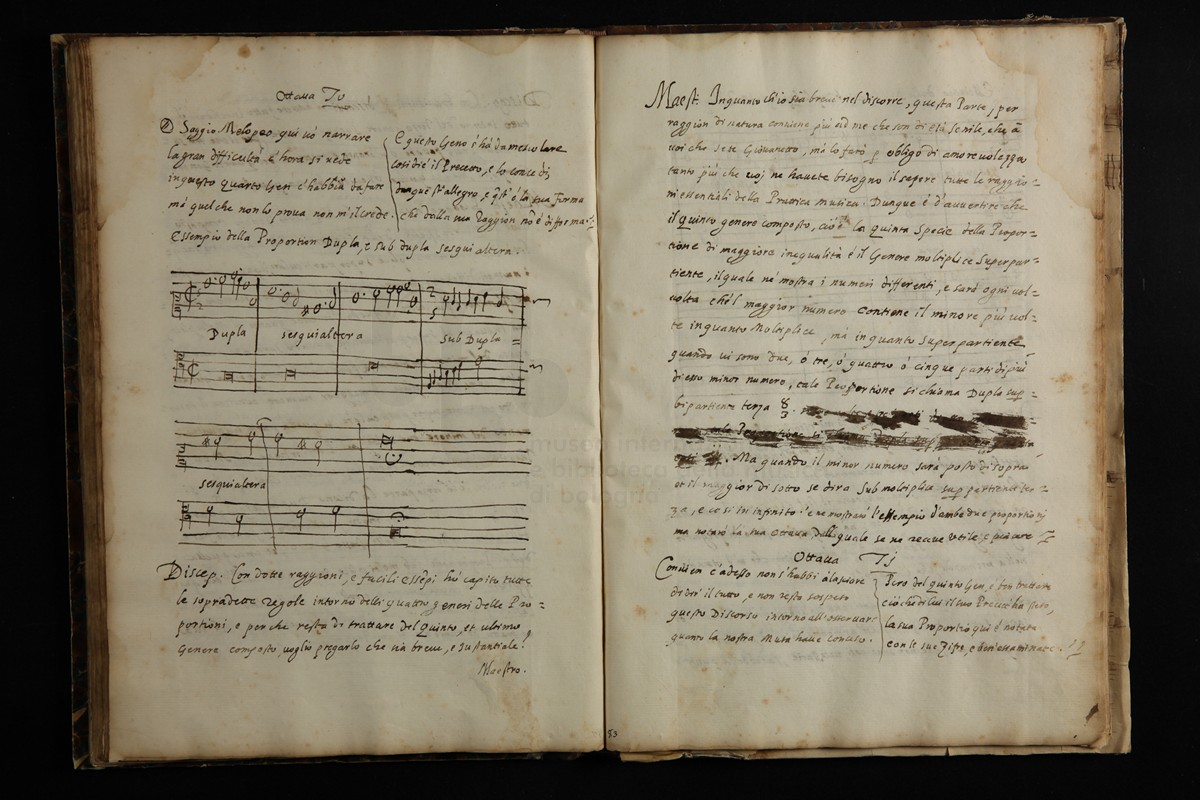 Ottaua
Saggio Melopeo qui uò narrare
la gran difficultà c'hora si uede
in questo quarto Gen: c'habbia da fare
mà quel che non lo proua non mi'l crede.
E questo Gene s'hà da mescolare
così dic'il Precetto, e lo conce di,
dunque allegro, e q'st' è la sua forma
che dalla ma Raggion nō è difforma
Essempio della Proportion Dupla, e sub dupla sesquialtera.
Dupla sesquialtera Sub Dupla
sesquialtera
Discep. Con dotte raggioni, e facili essēpi hò capito tutte
le sopradette regole intorno delli quattro generi delle Pro=
portioni, e perche resta di trattare del quinto, et ultimo
Genere composto, uoglio pregarlo che sia breue, e sustantiale.
Maestro.
53
Maest: Inquanto ch'io sia breue nel discorre, questa Parte, per
raggion di natura conuiene più ad me che son di età senile, che à
uoi che sete Giouanetto, mà lo farò p obligo di amoreuolezza
tanto più che uoi ne hauete bisogno il sapere tutte le raggio=
ni essentiali della Prattica musica. Dunque è d'auuertire che
il quinto genere composto, cioè la quinta specie della Propor=
tione di maggiore inequalità è il Genere moltiplice superpar=
tiente, il quale ne mostra i numeri differenti, e sarà ogni uol=
uolta che'l maggior numero contiene il minore più uol=
te inquanto Moltiplice, mà inquanto superpartiente
quando ui sono due, ò tre, ò quattro ò cinque parti di più
di esso minor numero, tale Proportione si chioma Dupla sup=
bipartiente terza 8/3.
Ma quando il minor numero sarà posto di sopra
et il maggior di sotto se dirà Sub moltiplice suppartiente ter=
za, e co si in infinito: e ne mostrarò l'essempio d'ambe due proportionj
ma notarò la sua ottaua dell quale se ne riceue utile, e piacere
Ottaua
Conuien c'adesso non s'habbi à lasciare
di dir il tutto, e non resto sospeso
questo Discorso intorno all'osseruare
quanto la nostra Musa haue conceso.
Però del quinto Gen, è ben trattare
ciò che di lui il suo Precetto hà peso,
la sua Proportiō qui è notata
con le sue Zifre, e ben'essaminata.